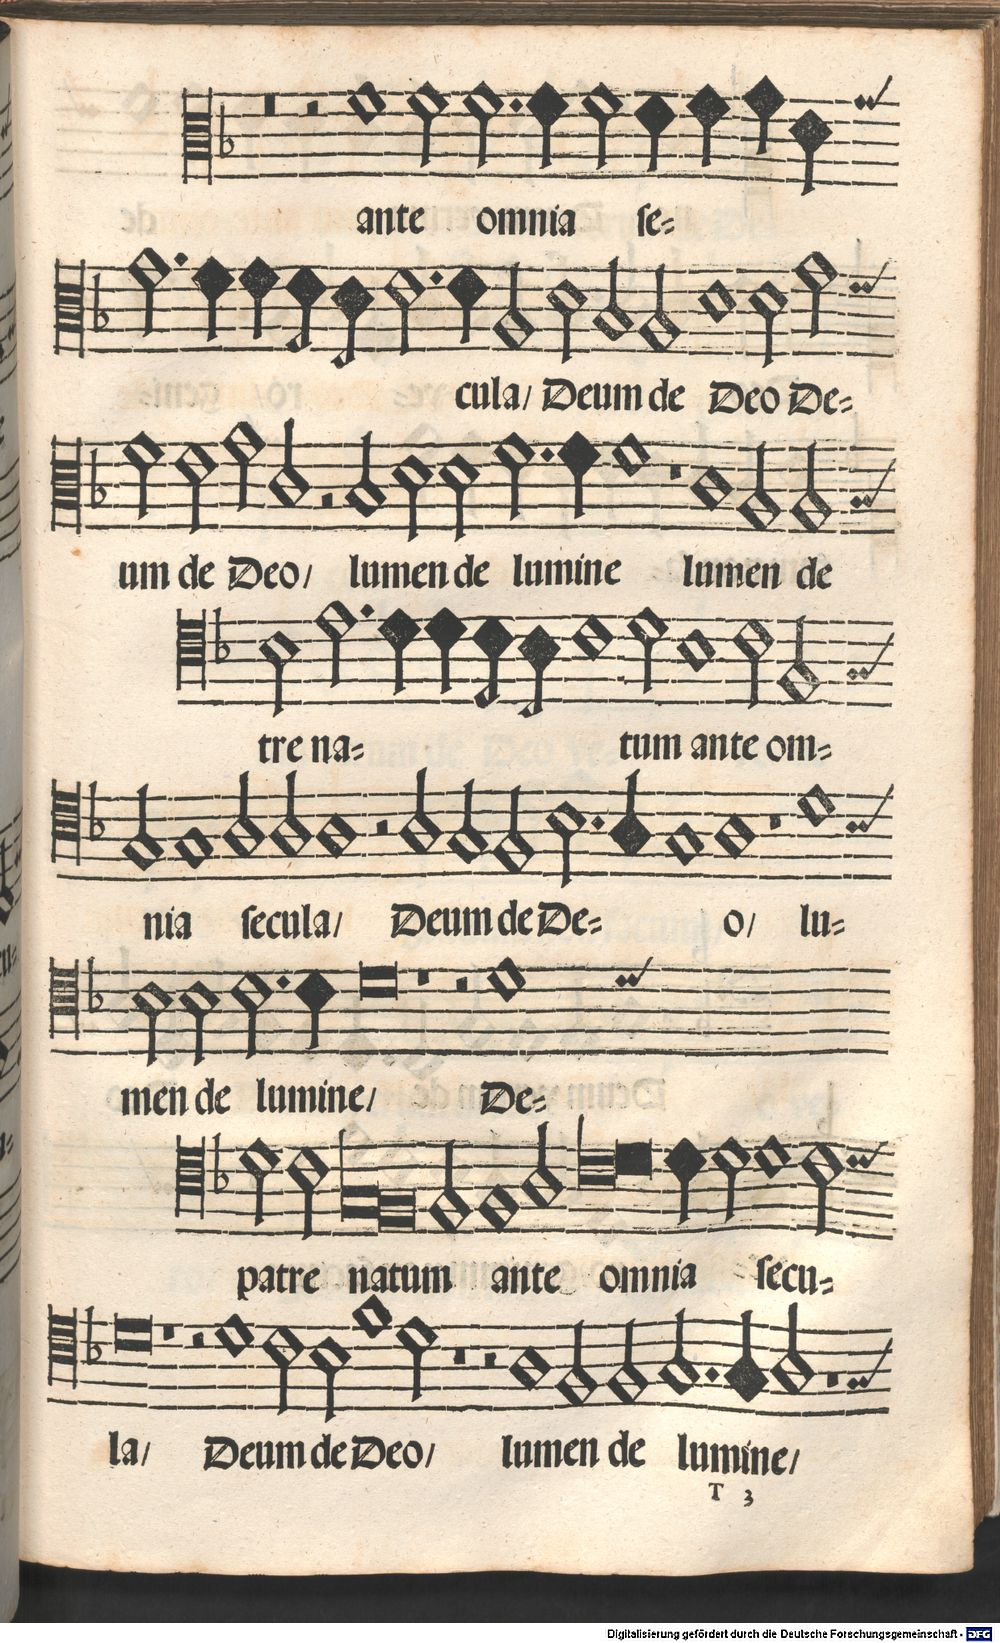 ante omnia se=
cula/ Deum de Deo De=
um de Deo/ lumen de lumine lumen de
tre na= tum ante om=
nia secula/ Deum de De= o/ lu=
men de lumine/ De=
patre natum ante omnia secu=
la/ Deum de Deo/ lumen de lumine/
T 3
Digitalisierung gefördert durch die Deutsche Forschungsgemeinschaft - DFG